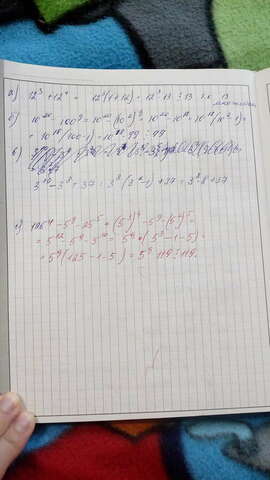 а) 12³ + 12⁴ = 12³(1+12) = 12³·13 ⋮ 13 т.к. 13
множитель
б) 10²⁰ - 100⁹ = 10²⁰ - (10²)⁹ = 10²⁰ - 10¹⁸ = 10¹⁸(10²-1) =
= 10¹⁸(100-1) = 10¹⁸·99 ⋮ 99
в)
3¹⁰ - 3⁸ + 37 = 3⁸(3²-1) + 37 = 3⁸·8 + 37
г) 125⁴ - 5⁹ - 25⁵ = (5³)⁴ - 5⁹ - (5²)⁵ =
= 5¹² - 5⁹ - 5¹⁰ = 5⁹·(5³ - 1 - 5) =
= 5⁹(125 - 1 - 5) = 5⁹·119 ⋮ 119.